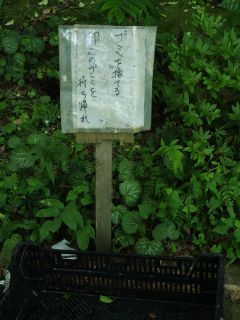 ゴミを捨てる
このゴミを
持ち帰れ